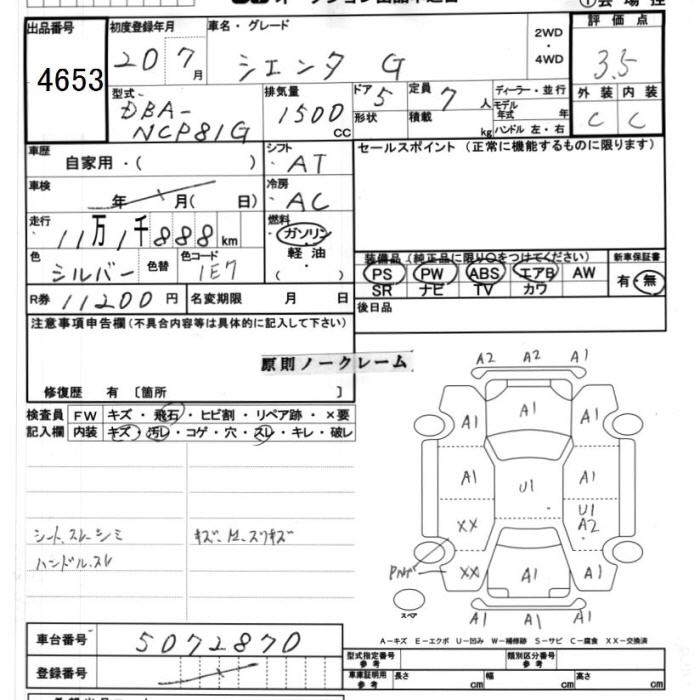 出品番号
4653
初度登録年月
20 7月
車名・グレード
シエンタ G
2WD
・
4WD
評価点
3.5
外装 内装
C C
型式
DBA-
NCP81G
排気量
1500 CC
ドア 5
形状
定員 7 人
積載 kg
ディーラー・並行
モデル年式 年
ハンドル 左・右
車歴
自家用・( )
シフト
AT
セールスポイント (正常に機能するものに限ります)
車検
年 月( 日)
冷房
AC
走行
11万1千888km
燃料
ガソリン
軽油
( )
色
シルバー
色替
色コード
1E7
装備品(純正品に限り○をつけてください)
PS PW ABS エアB AW
SR ナビ TV カワ
新車保証書
有・無
R券 11200円
名変期限 月 日
後日品
注意事項申告欄(不具合内容等は具体的に記入して下さい)
原則ノークレーム
修復歴 有 〔箇所 〕
検査員
記入欄
FW キズ・飛石・ヒビ割・リペア跡・×要
内装 キズ・汚レ・コゲ・穴・スレ・キレ・破レ
シート、スレ-シミ
ハンドル、スレ
A2 A2 A1
A1
A1 A1
A1 U1 A1
XX U1
A2
XX A1 A1
A1 A1 A1
スペア
A-キズ E-エクボ U-凹み W-補修跡 S-サビ C-腐食 XX-交換済
車台番号
5072870
登録番号
型式指定番号
参考
類別区分番号
参考
車庫証明用
参考
長さ cm
幅 cm
高さ cm